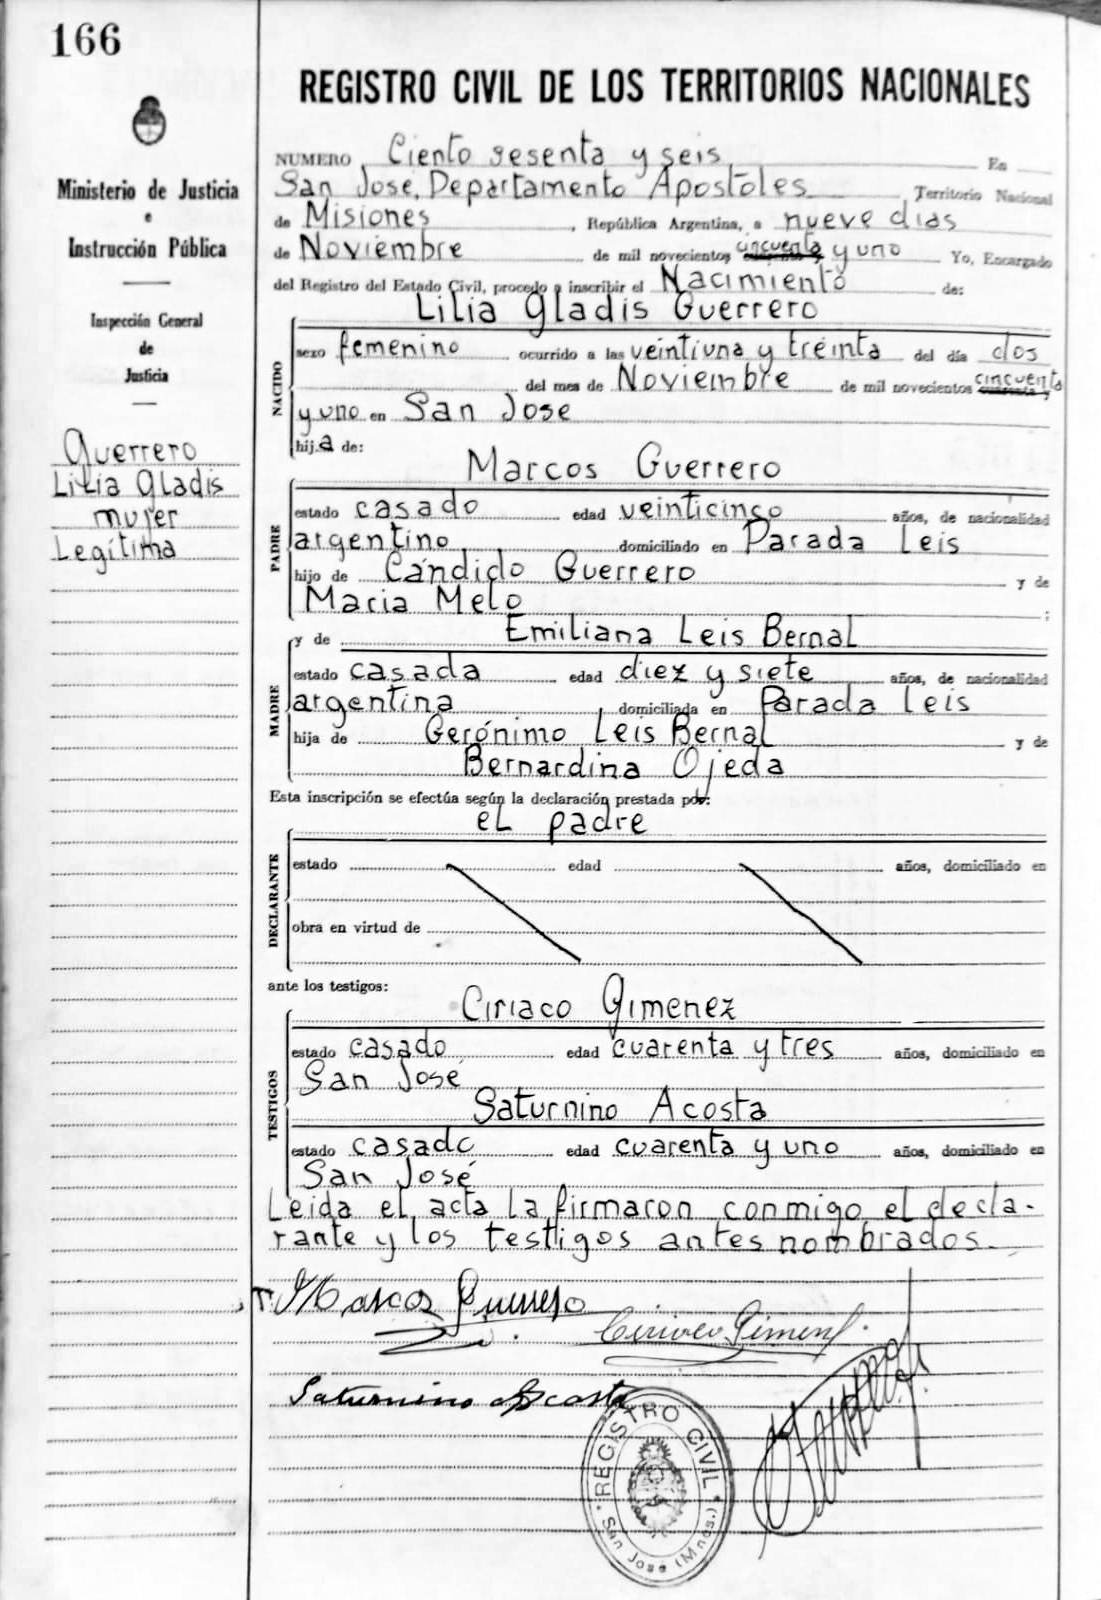 166
REGISTRO CIVIL DE LOS TERRITORIOS NACIONALES
Ministerio de Justicia
e
Instrucción Pública
Inspección General
de
Justicia
Guerrero
Lilia Gladis
mujer
Legítima
NUMERO Ciento sesenta y seis En
San José, Departamento Apostoles Territorio Nacional
de Misiones, República Argentina, a nueve dias
de Noviembre de mil novecientos cincuenta y uno Yo, Encargado
del Registro del Estado Civil, procedo a inscribir el Nacimiento de:
Lilia Gladis Guerrero
NACIDO
sexo femenino ocurrido a las veintiuna y treinta del día dos
del mes de Noviembre de mil novecientos cincuenta
y uno en San Jose
hija de:
Marcos Guerrero
PADRE
estado casado edad veinticinco años, de nacionalidad
argentino domiciliado en Parada Leis
hijo de Cándido Guerrero y de
Maria Melo ;
y de Emiliana Leis Bernal
MADRE
estado casada edad diez y siete años, de nacionalidad
argentina, domiciliada en Parada Leis
hija de Gerónimo Leis Bernal y de
Bernardina Ojeda
Esta inscripción se efectúa según la declaración prestada por:
el padre
DECLARANTE
estado edad años, domiciliado en
obra en virtud de
ante los testigos:
Ciriaco Gimenez
TESTIGOS
estado casado edad cuarenta y tres años, domiciliado en
San Jose
Saturnino Acosta
estado casado edad cuarenta y uno años, domiciliado en
San José
Leida el acta la firmaron conmigo el decla-
rante y los testigos antes nombrados.
Marcos Guerrero
Ciriaco Gimenez
Saturnino Acosta
REGISTRO CIVIL
San José (Mnes.)